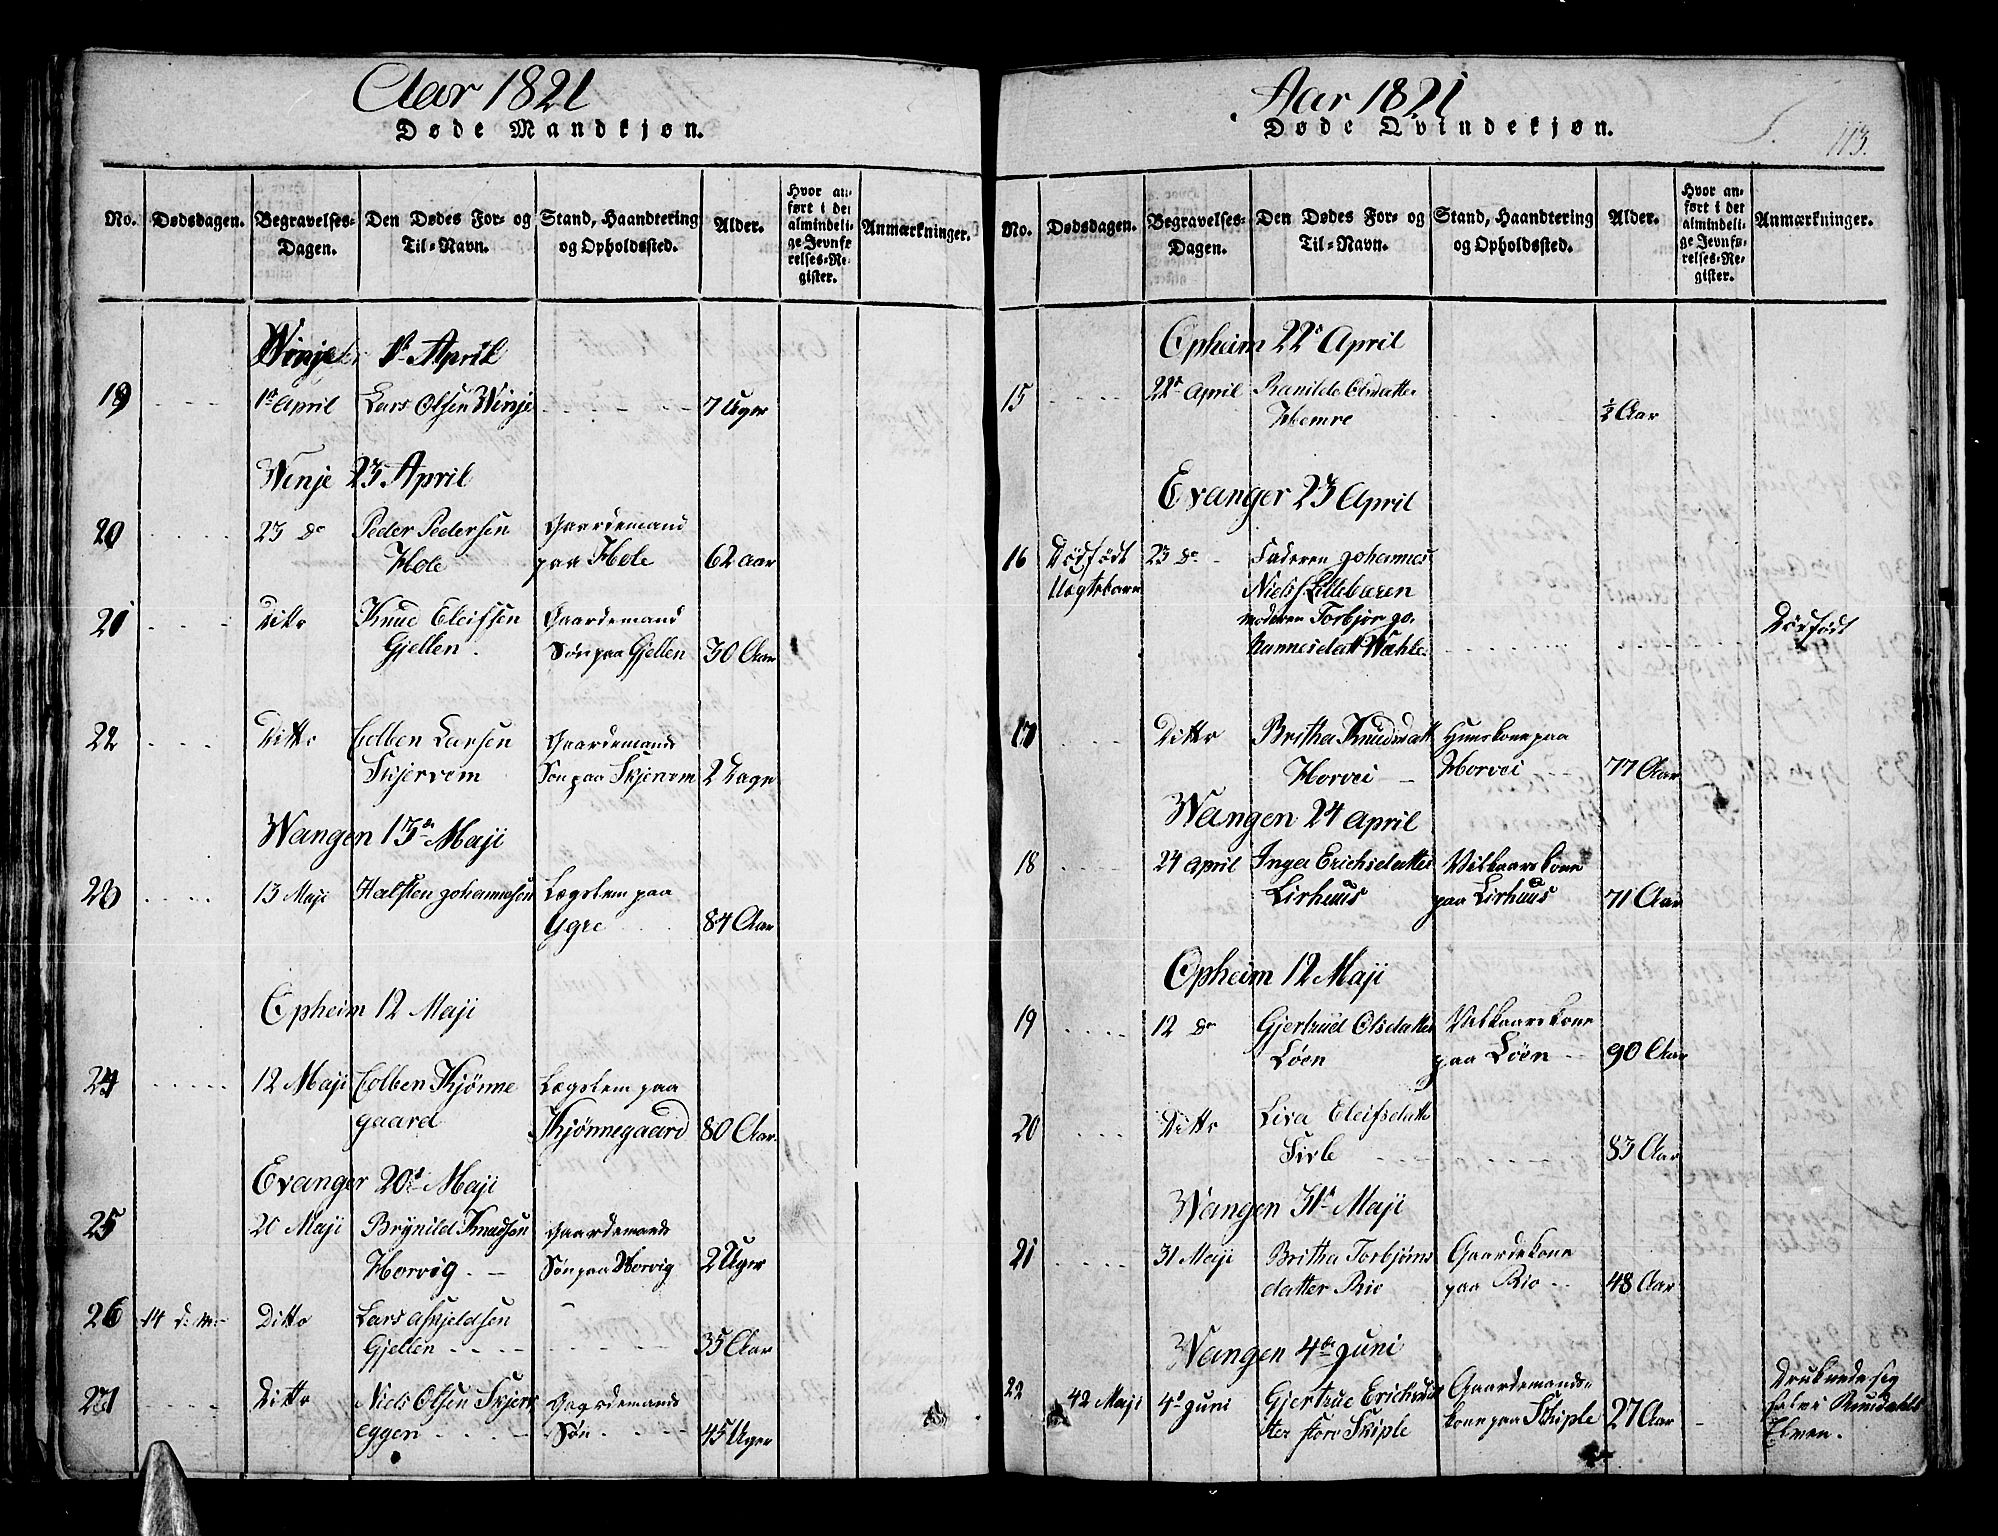 Aar 1821
Døde Mandkjøn.
No. Dødsdagen. Begravelses-Dagen. Den Dødes For- og Til-Navn. Stand, Haandtering og Opholdssted. Alder. Hvor anført i det almindelige Jevnførelses-Register. Anmærkninger.
Winje 1ste April
19 1ste April Lars Olsen Winje 7 Uger
Winje 23 April
20 23 do Peder Pedersen Gaardemand
Hole paa Hole 62 aar
21 Ditto Knud Eleifsen Gaardemand
Gjellen Søn paa Gjellen 30 Aar
22 Ditto Colben Larsen Gaardemands
Skjervem Søn paa Skjervem 2 Dage
Wangen 13de Maji
23 13 Maji Halsten Johannesen Lægslem paa
Ygre 84 Aar
Opheim 12 Maji
24 12 Maji Colben Kjønne Lægslem paa
gaard Kjønnegaard 80 Aar
Evanger 20de Maji
25 20 Maji Brynild Knudsen Gaardemands
Horvig Søn paa Horvig 2 Uger
26 14 Ditto Lars Askjeldsen
Gjellen 35 Aar
27 Ditto Niels Olsen Skjers Gaardemands
eggen Søn 45 Uger
Aar 1821
Døde Qvindekjøn.
113.
No. Dødsdagen. Begravelses-Dagen. Den Dødes For- og Til-Navn. Stand, Haandtering og Opholdssted. Alder. Hvor anført i det almindelige Jevnførelses-Register. Anmærkninger.
Opheim 22de April
15 22de April Ranilde Olsdatter
Hemre ½ Aar
Evanger 23 April
16 Dødfødt 23 do Faderen Johannes
Uægtebarn Niels Lillebæren
moderen Torbjør Jo- Dødfødt
hannesdatt Wæhle
17 Ditto Britha Knudsdatt Huuskone paa
Horvei Horvei 77 Aar
Wangen 24 April
18 24 April Inger Erichsdatter Vilkaarskone
Lirhuus paa Lirhuus 71 Aar
Opheim 12 Maji
19 12 do Gjertrud Olsdatter Vilkaarskone
Løen paa Løen 90 Aar
20 Ditto Liva Eleifsdatte
Sivle 83 Aar
Wangen 31te Maji
21 31 Maji Britha Torbjøns Gaardekone
datter Rio paa Rio 48 Aar
Wangen 4de Juni
22 42 Maji 4de Juni Gjertrue Erichsdat Gaardemands- Druknede sig
ter store Skiple kone paa Skiple 27 Aar Rundahls
Elven.